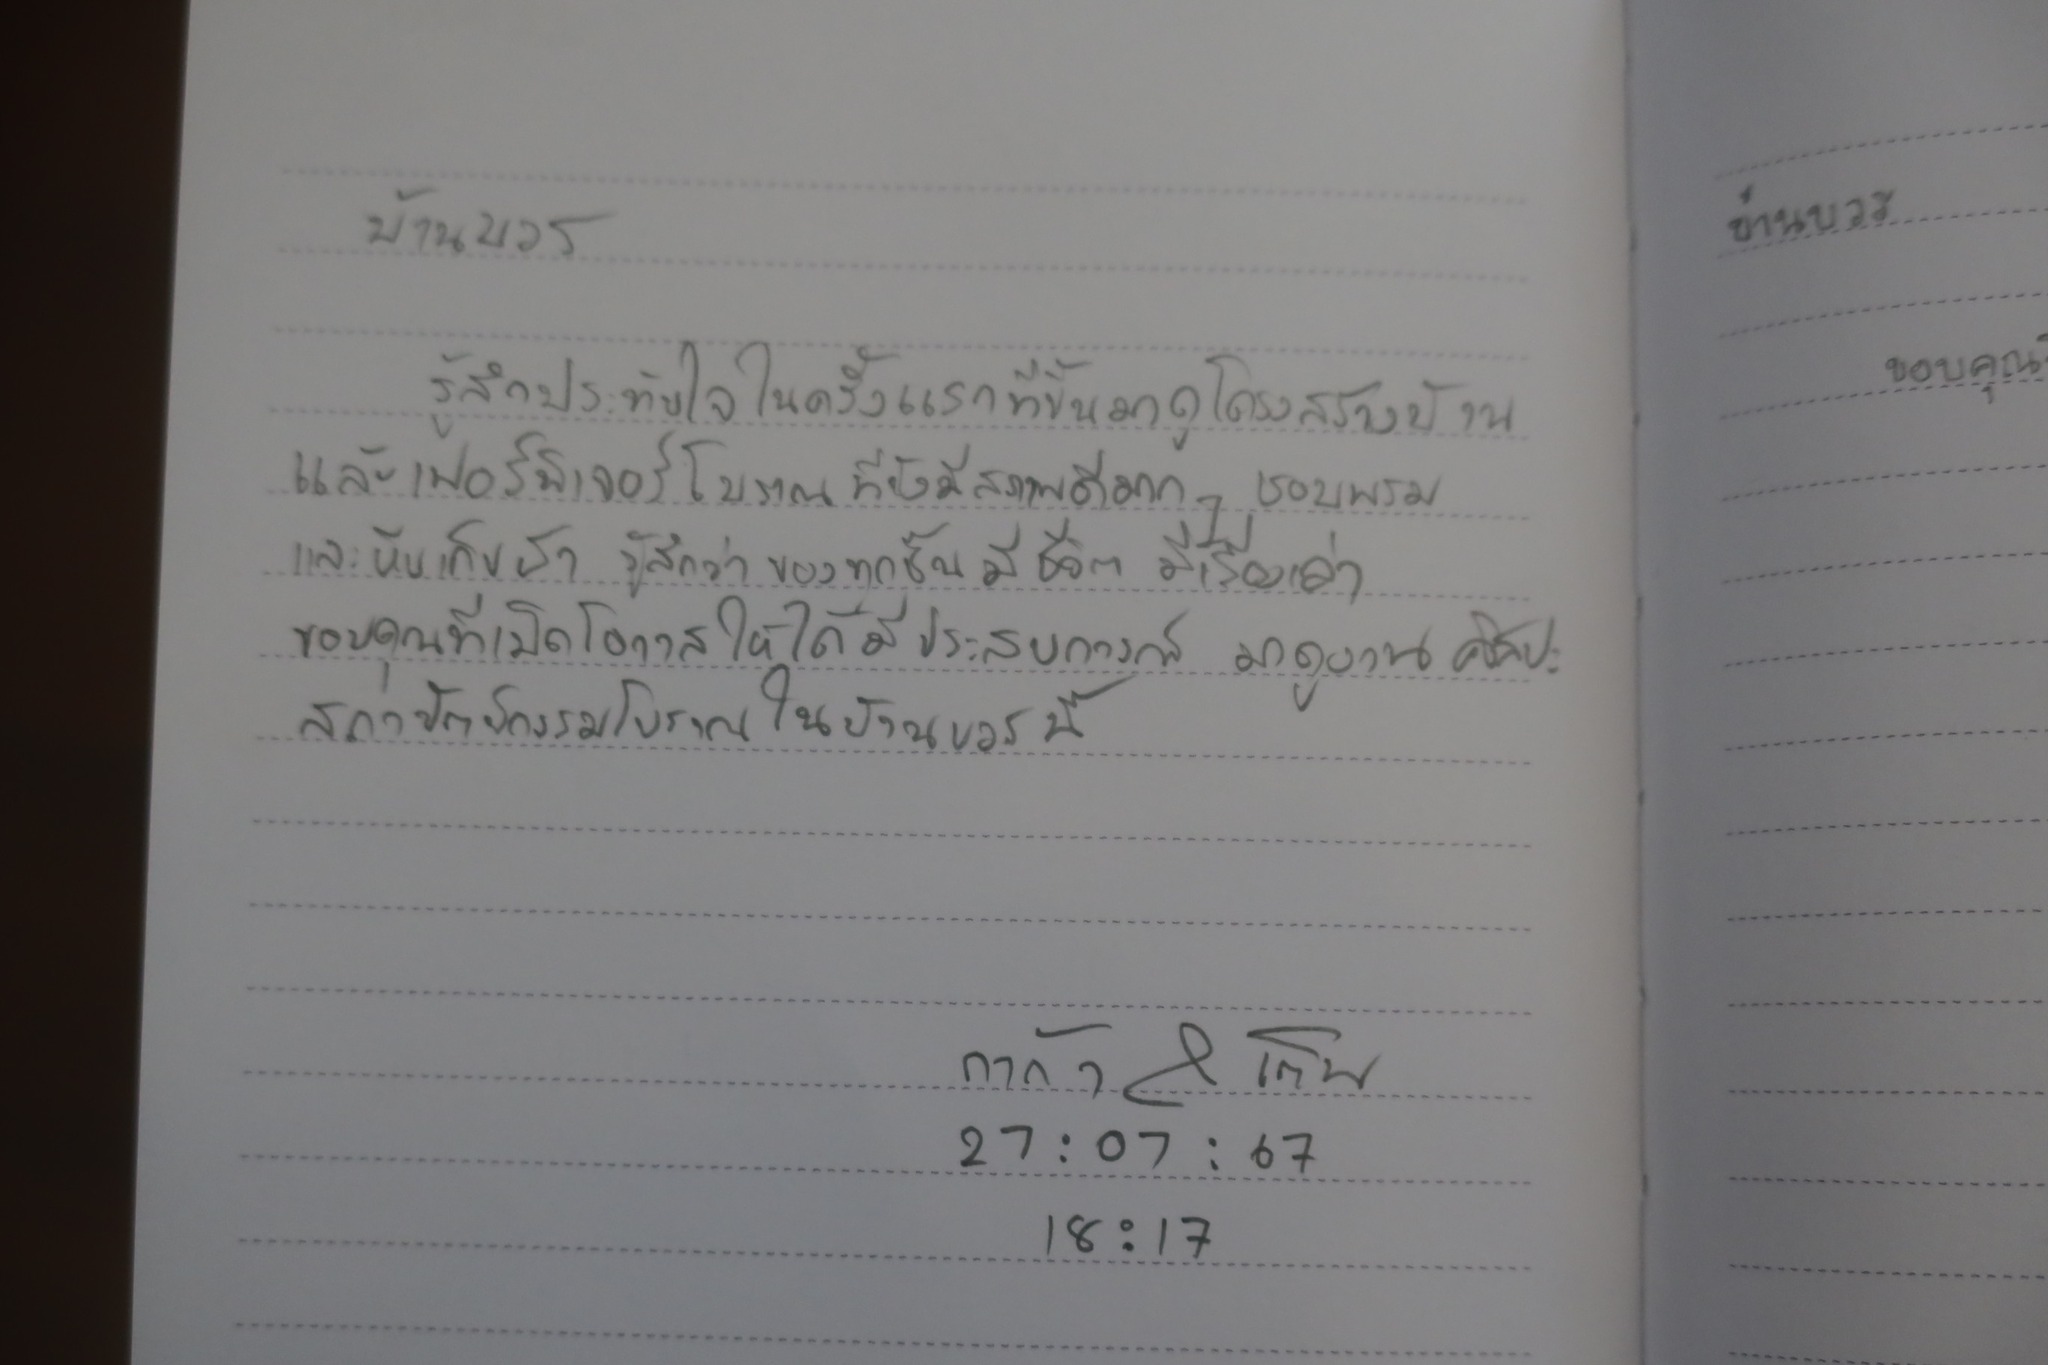 บ้านบวร
รู้สึกประทับใจในครั้งแรกที่ขึ้นมาดูโครงสร้างบ้าน
และเฟอร์นิเจอร์โบราณ ที่ยังมีสภาพดีมากๆ ชอบพรม
และหีบเก็บผ้า รู้สึกว่าของทุกชิ้นมีชีวิต มีเรื่องเล่า
ขอบคุณที่เปิดโอกาสให้ได้มีประสบการณ์ มาดูงานศิลปะ
สถาปัตย์กรรมโบราณในบ้านบวรนี้
กาก้า &
27:07:67
18:17
บ้านบวร
ขอบคุณ